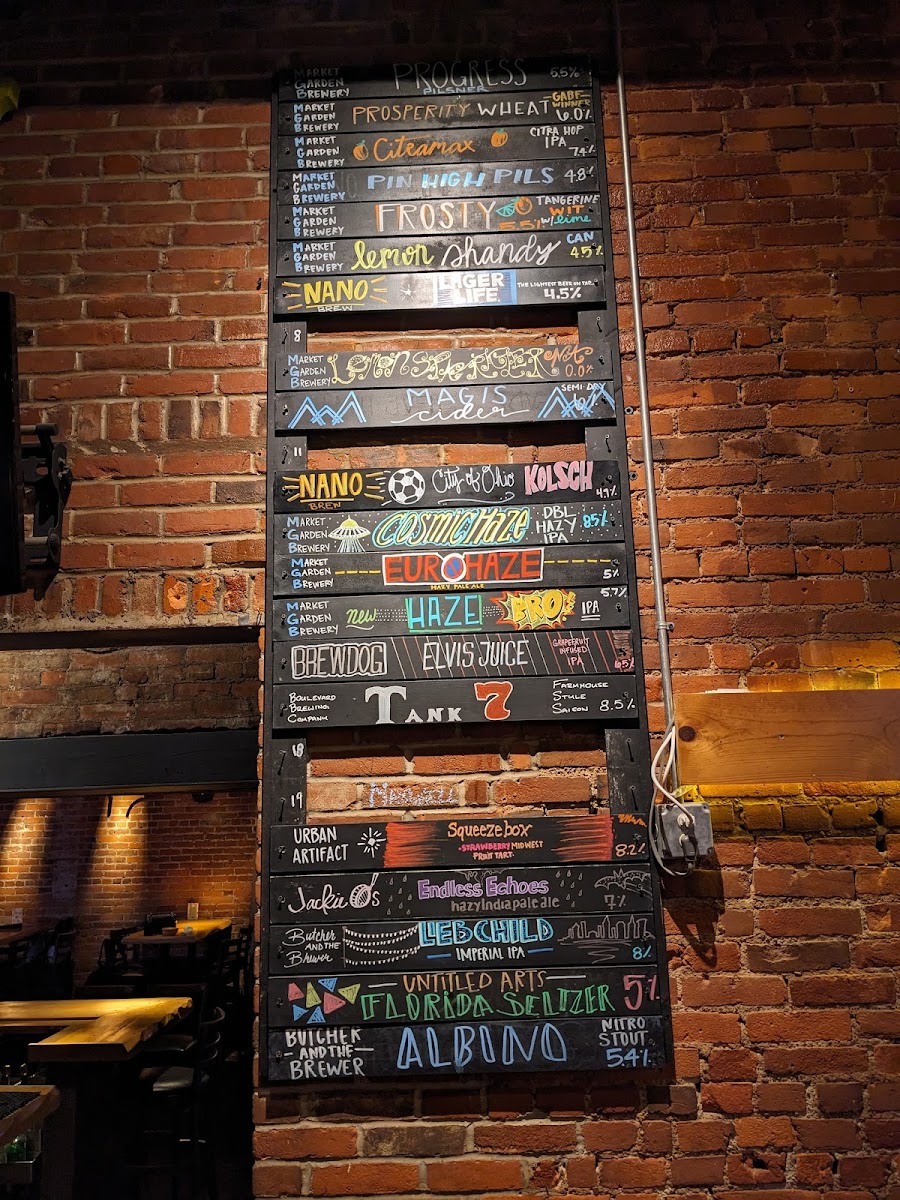 MARKET GARDEN BREWERY PROGRESS PILSNER 5.5%
MARKET GARDEN BREWERY PROSPERITY WHEAT GABF WINNER 6.0%
MARKET GARDEN BREWERY Citramax CITRA HOP IPA 7.4%
MARKET GARDEN BREWERY PIN HIGH PILS 4.8%
MARKET GARDEN BREWERY FROSTY TANGERINE WIT w/ lime 5.5%
MARKET GARDEN BREWERY lemon shandy CAN 4.5%
NANO BREW LAGER LIFE THE LIGHTEST BEER ON TAP. 4.5%
8
MARKET GARDEN BREWERY N/A 0.0%
MAGIS cider SEMI-DRY
11
NANO BREW City of Ohio KÖLSCH 4.9%
MARKET GARDEN BREWERY COSMIC HAZE DBL HAZY IPA 8.5%
MARKET GARDEN BREWERY EUROHAZE HAZY PALE ALE 5%
MARKET GARDEN BREWERY new HAZE BRO IPA 5.7%
BREWDOG ELVIS JUICE GRAPEFRUIT INFUSED IPA 6.5%
BOULEVARD BREWING COMPANY TANK 7 FARMHOUSE STYLE SAISON 8.5%
18
19
URBAN ARTIFACT Squeezebox •STRAWBERRY MIDWEST FRUIT TART• 8.2%
Jackie O's Endless Echoes hazy India pale ale 7%
Butcher AND THE Brewer LIEBCHILD IMPERIAL IPA 8%
UNTITLED ARTS FLORIDA SELTZER 5%
BUTCHER AND THE BREWER ALBINO NITRO STOUT 5.4%